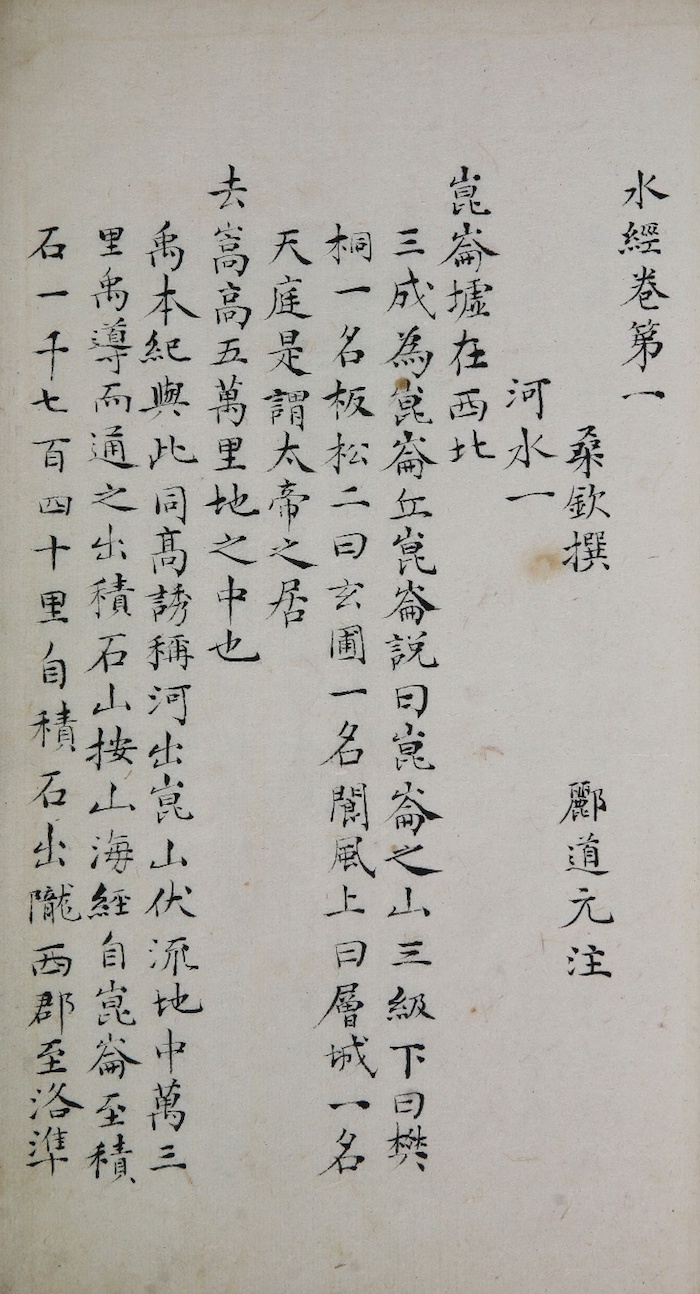 水經卷第一
桑欽撰 酈道元注
河水一
崑崙墟在西北
三成為崑崙丘崑崙說曰崑崙之山三級下曰樊
桐一名板松二曰玄圃一名閬風上曰層城一名
天庭是謂太帝之居
去嵩高五萬里地之中也
禹本紀與此同高誘稱河出崑山伏流地中萬三
里禹導而通之出積石山按山海經自崑崙至積
石一千七百四十里自積石出隴西郡至洛準